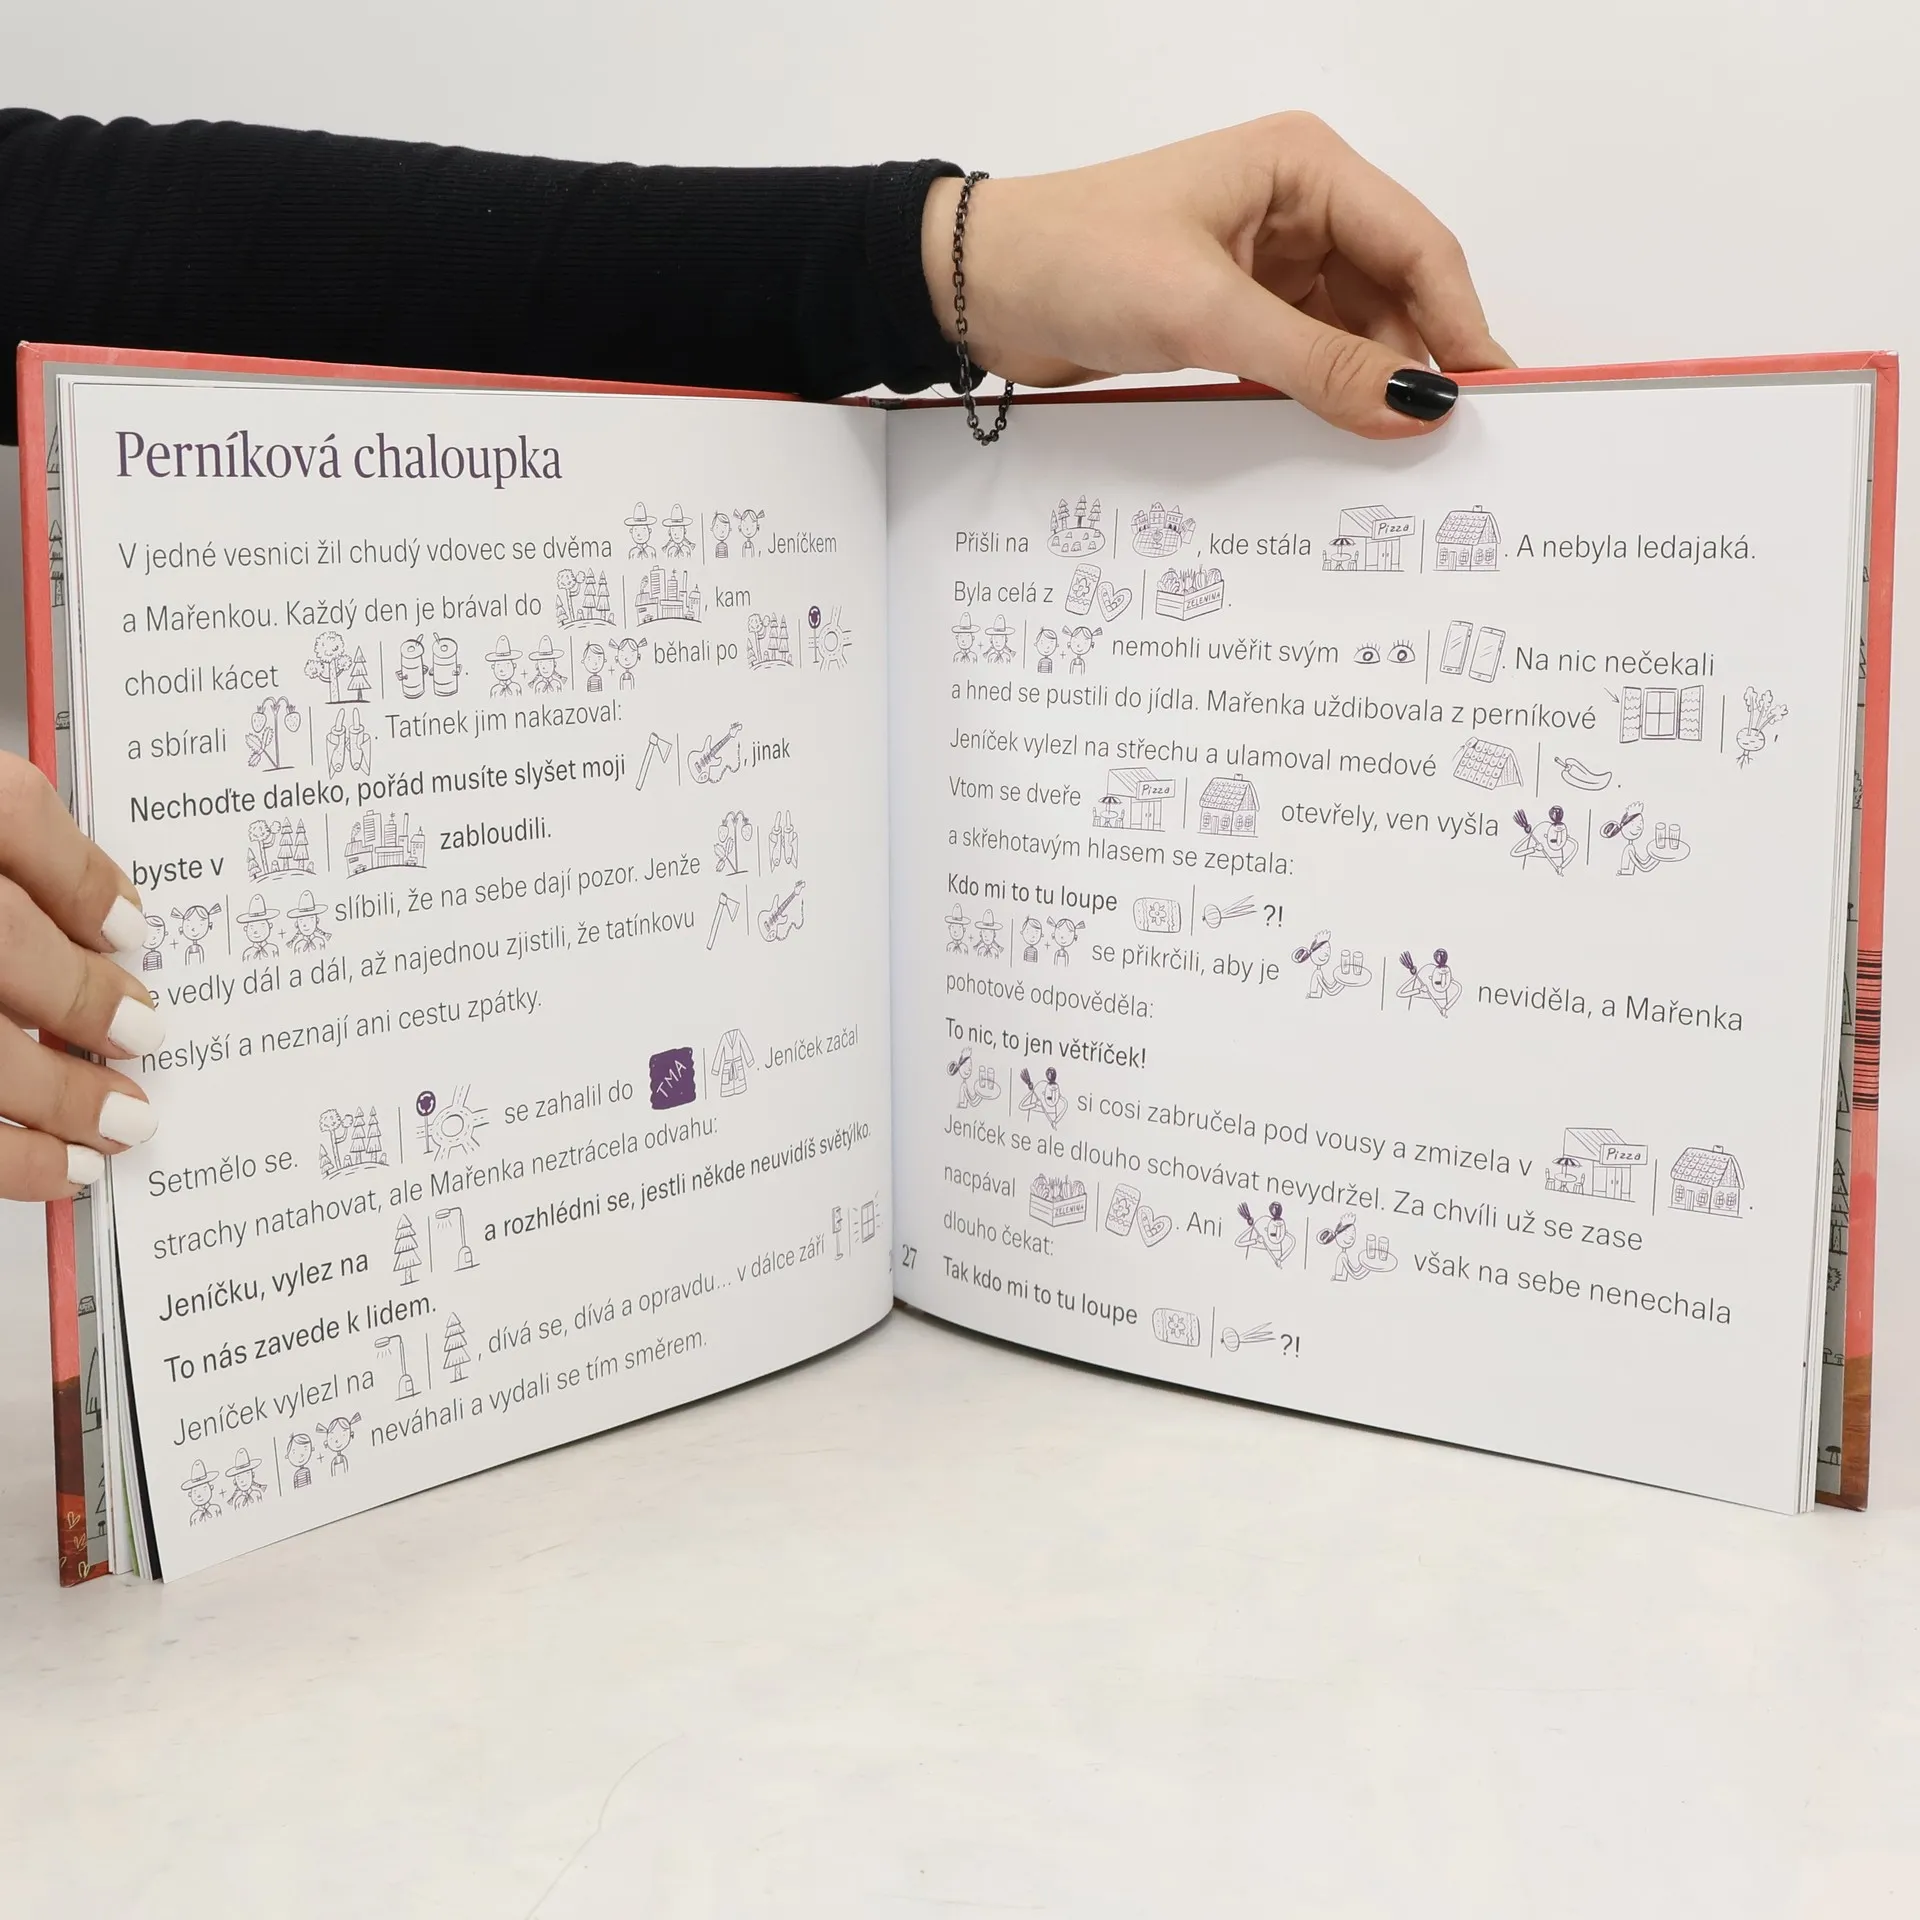 Perníková chaloupka
V jedné vesnici žil chudý vdovec se dvěma , Jeníčkem
a Mařenkou. Každý den je brával do , kam
chodil kácet . běhali po
a sbírali . Tatínek jim nakazoval:
Nechoďte daleko, pořád musíte slyšet moji , jinak
byste v zabloudili.
slíbili, že na sebe dají pozor. Jenže
vedly dál a dál, až najednou zjistili, že tatínkovu
neslyší a neznají ani cestu zpátky.
Setmělo se. se zahalil do TMA . Jeníček začal
strachy natahovat, ale Mařenka neztrácela odvahu:
Jeníčku, vylez na a rozhlédni se, jestli někde neuvidíš světýlko.
To nás zavede k lidem.
Jeníček vylezl na , dívá se, dívá a opravdu... v dálce září
neváhali a vydali se tím směrem.
Přišli na , kde stála Pizza . A nebyla ledajaká.
Byla celá z ZELENINA .
nemohli uvěřit svým . Na nic nečekali
a hned se pustili do jídla. Mařenka uždibovala z perníkové ,
Jeníček vylezl na střechu a ulamoval medové .
Vtom se dveře Pizza otevřely, ven vyšla
a skřehotavým hlasem se zeptala:
Kdo mi to tu loupe ?!
se přikrčili, aby je neviděla, a Mařenka
pohotově odpověděla:
To nic, to jen větříček!
si cosi zabručela pod vousy a zmizela v Pizza .
Jeníček se ale dlouho schovávat nevydržel. Za chvíli už se zase
nacpával ZELENINA . Ani však na sebe nenechala
dlouho čekat:
Tak kdo mi to tu loupe ?!
27